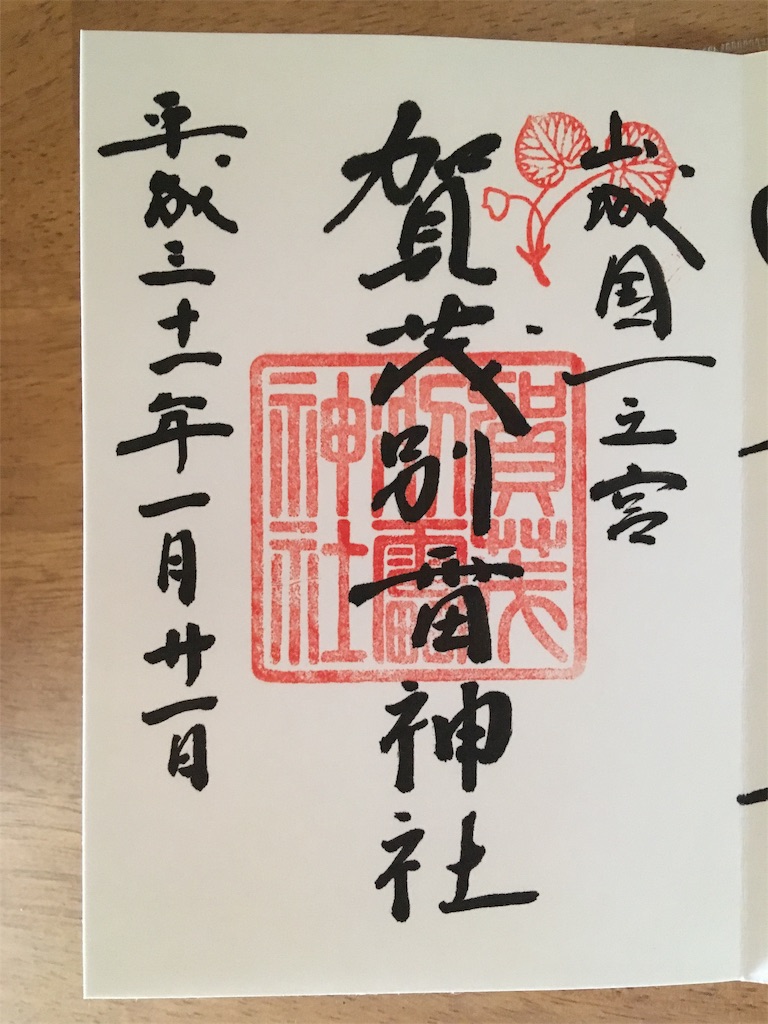 山城国一之宮
賀茂別雷神社
賀茂別雷神社
平成三十一年一月廿一日